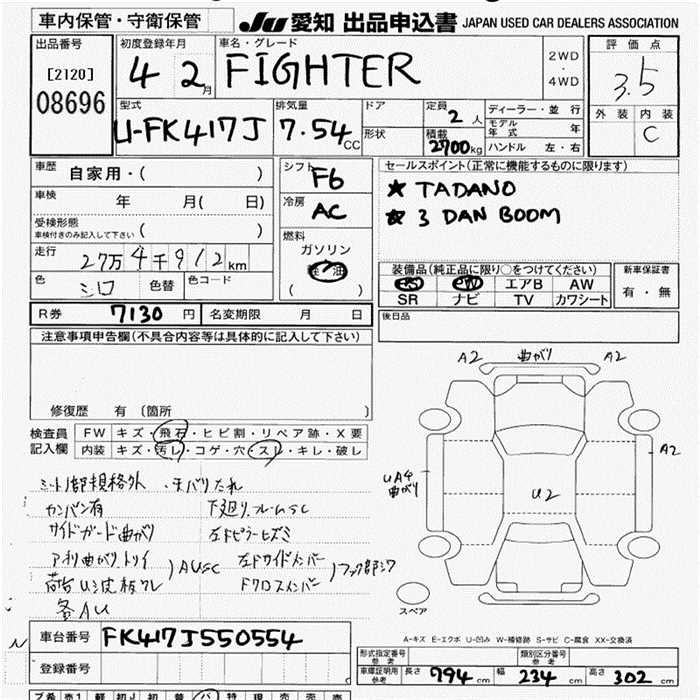 車内保管・守衛保管
JU 愛知 出品申込書 JAPAN USED CAR DEALERS ASSOCIATION
出品番号
[2120]
08696
初度登録年月
4 2月
車名・グレード
FIGHTER
2WD
・
4WD
評価点
3.5
外装 内装
C
型式
U-FK417J
排気量
7.54cc
ドア
形状
定員
2人
積載
2700kg
ディーラー・並行
モデル年式 年
ハンドル 左・右
車歴 自家用・( )
車検 年 月( 日)
受検形態
車検付きのみ記入して下さい ( )
走行 27万4千912km
色 シロ 色替 色コード
シフト F6
冷房 AC
燃料
ガソリン
軽油
( )
セールスポイント(正常に機能するものに限ります)
★ TADANO
★ 3 DAN BOOM
装備品(純正品に限り○をつけてください)
PS PW エアB AW
SR ナビ TV カワシート
新車保証書
有・無
R券 7130円 名変期限 月 日
後日品
注意事項申告欄(不具合内容等は具体的に記入して下さい)
修復歴 有 〔箇所 〕
検査員記入欄
FW キズ・飛石・ヒビ割・リペア跡・X要
内装 キズ・汚レ・コゲ・穴・スレ・キレ・破レ
シート1部規格外
カンバン有
サイドガード曲がり
下廻り.フレームSC
左Fピラーヒズミ
アオリ曲がり.トリイ
荷台
) AUSC
左Fサイドメンバー
Fクロスメンバー
各AU
A2 曲がり A2
A2
UA4
曲がり
U2
スペア
A-キズ E-エクボ U-凹み W-補修跡 S-サビ C-腐食 XX-交換済
車台番号 FK417J550554
登録番号
形式指定番号
参考
類別区分番号
参考
車庫証明用
参考
長さ 794cm 幅 234cm 高さ 302cm